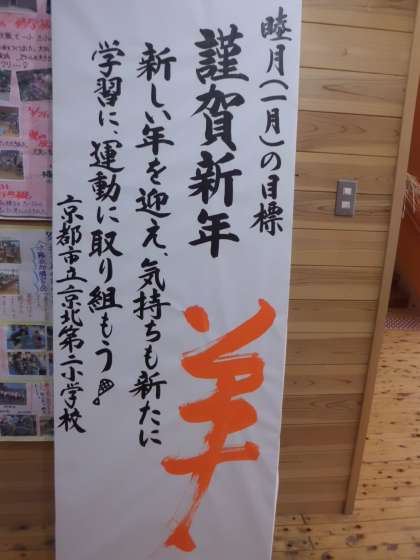 睦月(一月)の目標
謹賀新年
新しい年を迎え、気持ちも新たに
学習に、運動に取り組もう。
京都市立京北第二小学校
羊